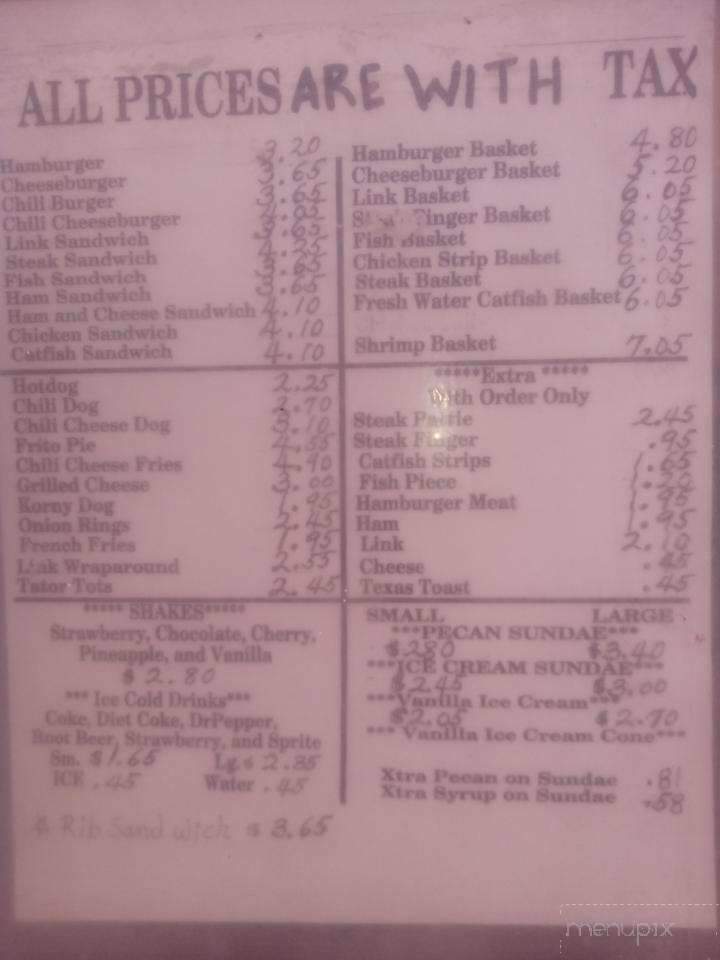 ALL PRICES ARE WITH TAX
Hamburger 3.20
Cheeseburger 3.65
Chili Burger 3.65
Chili Cheeseburger
Link Sandwich 3.65
Steak Sandwich
Fish Sandwich 3.65
Ham Sandwich 3.65
Ham and Cheese Sandwich 4.10
Chicken Sandwich 4.10
Catfish Sandwich 4.10
Hamburger Basket 4.80
Cheeseburger Basket 5.20
Link Basket 6.05
Finger Basket 6.05
Fish Basket 6.05
Chicken Strip Basket 6.05
Steak Basket 6.05
Fresh Water Catfish Basket 6.05
Shrimp Basket 7.05
Hotdog 2.25
Chili Dog 2.70
Chili Cheese Dog 3.10
Frito Pie 4.55
Chili Cheese Fries 4.90
Grilled Cheese 3.00
Korny Dog 1.95
Onion Rings 2.45
French Fries 1.95
Link Wraparound 2.55
Tator Tots 2.45
*****Extra *****
With Order Only
Steak Pattie 2.45
Steak Finger .95
Catfish Strips 1.65
Fish Piece 1.20
Hamburger Meat 1.95
Ham 1.95
Link 2.10
Cheese .45
Texas Toast .45
***** SHAKES*****
Strawberry, Chocolate, Cherry,
Pineapple, and Vanilla
$ 2.80
*** Ice Cold Drinks***
Coke, Diet Coke, DrPepper,
Root Beer, Strawberry, and Sprite
Sm. $1.65 Lg $ 2.35
ICE .45 Water .45
SMALL LARGE
***PECAN SUNDAE***
$2.80 $3.40
***ICE CREAM SUNDAE***
$2.45 $3.00
***Vanilla Ice Cream***
$2.05 $2.70
*** Vanilla Ice Cream Cone***
Xtra Pecan on Sundae .81
Xtra Syrup on Sundae .58
Rib Sandwich $ 3.65
menupix